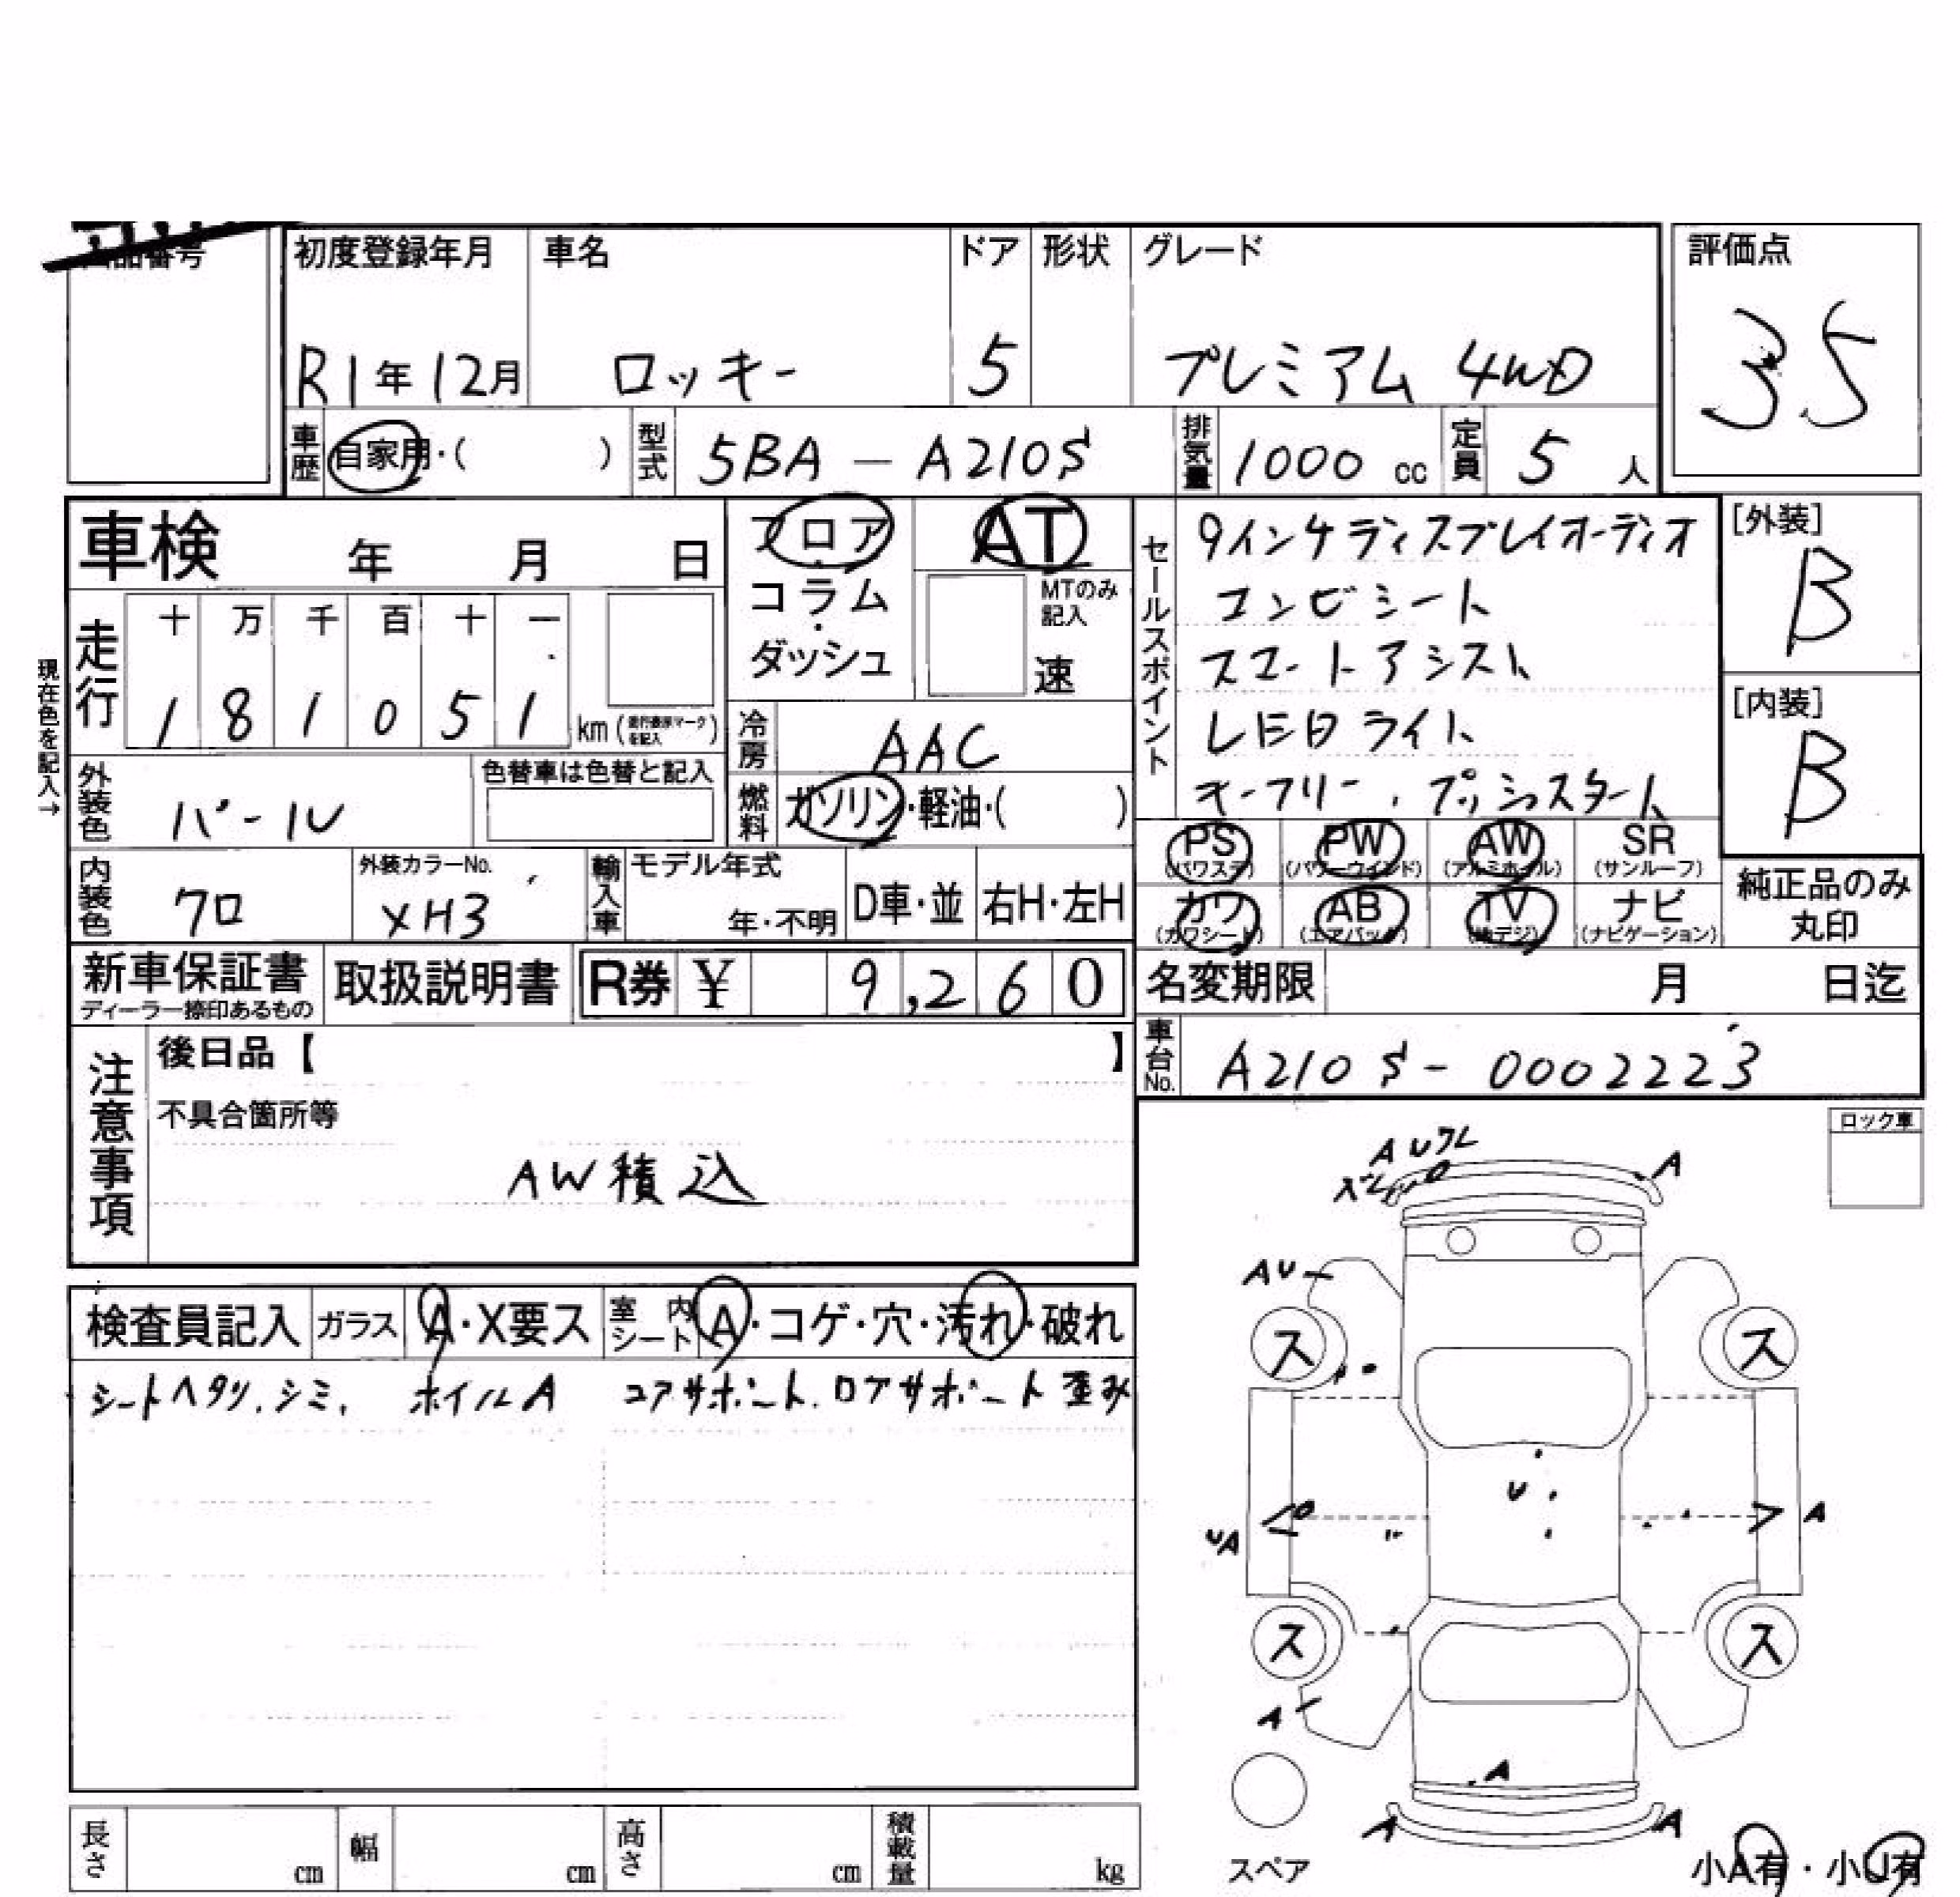 品番号
初度登録年月 車名 ドア 形状 グレード 評価点
R1年12月 ロッキー 5 プレミアム 4WD 3.5
車歴 自家用・( ) 型式 5BA-A210S 排気量 1000 cc 定員 5 人
車検 年 月 日
フロア・コラム・ダッシュ
AT
MTのみ記入
速
セールスポイント
9インチディスプレイオーディオ
コンビシート
スマートアシスト
LEDライト
キーフリー、プッシュスタート
[外装]
B
[内装]
B
現在色を記入→
走行 十 万 千 百 十 一
1 8 1 0 5 1 km (走行表示マークを記入)
冷房 AAC
燃料 ガソリン・軽油・( )
外装色 パール 色替車は色替と記入
内装色 クロ 外装カラーNo. XH3
輸入車 モデル年式 年・不明 D車・並 右H・左H
PS (パワステ) PW (パワーウインド) AW (アルミホイル) SR (サンルーフ)
カワ (カワシート) AB (エアバック) TV (地デジ) ナビ (ナビゲーション)
純正品のみ丸印
新車保証書 ディーラー捺印あるもの
取扱説明書
R券 ¥ 9,260
名変期限 月 日迄
車台No. A210S-0002223
注意事項
後日品【 】
不具合箇所等
AW積込
ロック車
検査員記入 ガラス A・X要ス 室内シート A・コゲ・穴・汚れ・破れ
シートヘタリ、シミ、 ホイルA コアサポート、ロアサポート歪み
AUワレ
A
AU
ス ス
U
UA
A
ス ス
A
A
A A
スペア
小A有・小U有
長さ cm 幅 cm 高さ cm 積載量 kg